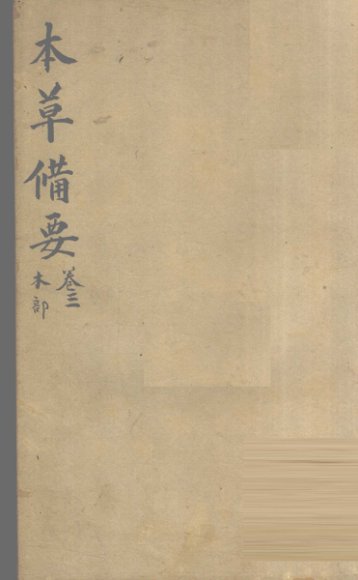 本草備要
卷三
木部